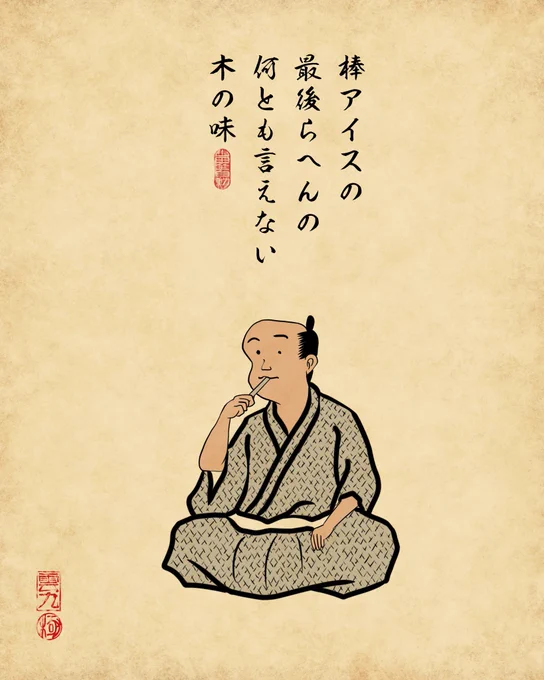 棒アイスの
最後らへんの
何とも言えない
木の味